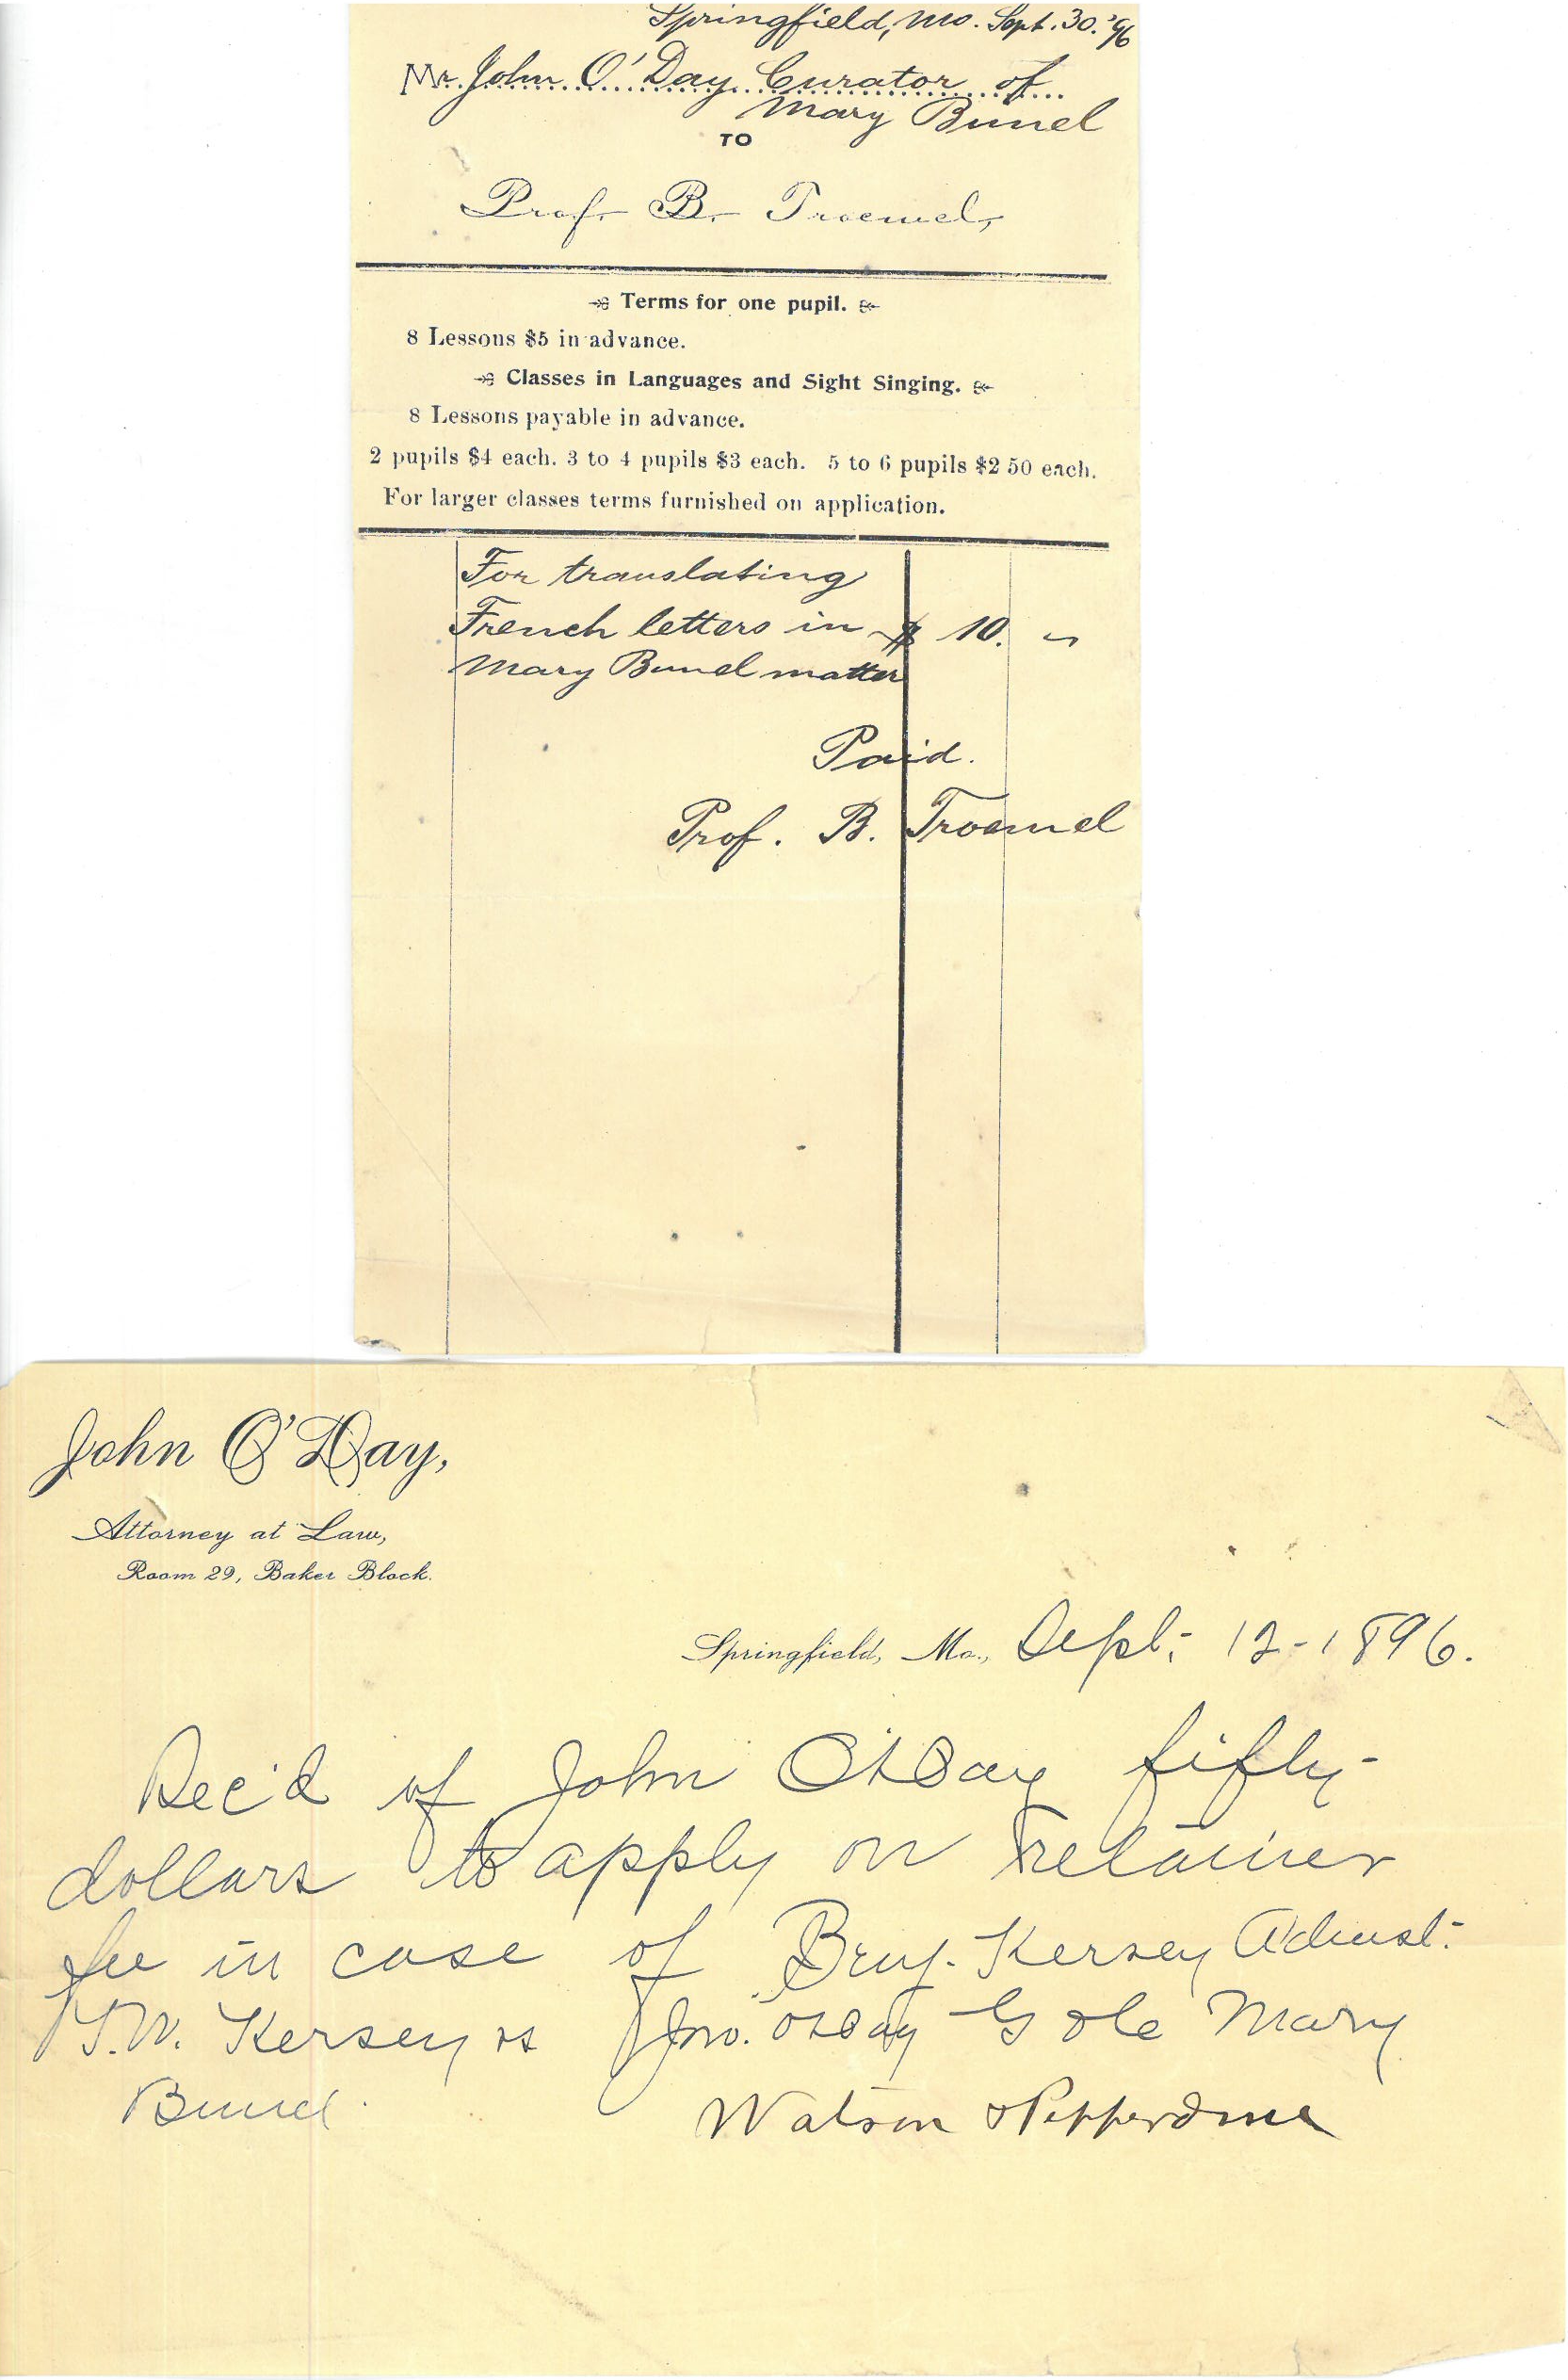 Springfield, Mo. Sept. 30. '96
Mr. John O'Day Curator of
Mary Bunel
TO
Prof. B. Troemel,
Terms for one pupil.
8 Lessons $5 in advance.
Classes in Languages and Sight Singing.
8 Lessons payable in advance.
2 pupils $4 each. 3 to 4 pupils $3 each. 5 to 6 pupils $2 50 each.
For larger classes terms furnished on application.
For translating
French letters in $ 10. –
Mary Bunel matter
Paid.
Prof. B. Troemel
John O'Day,
Attorney at Law,
Room 29, Baker Block.
Springfield, Mo., Sept. 12-1896.
Rec'd of John O'Day fifty
dollars to apply on retainer
fee in case of Benj. Kersey Admst.
T.W. Kersey vs Jno. O'Day G of Mary
Bunel
Watson & Pepperdine